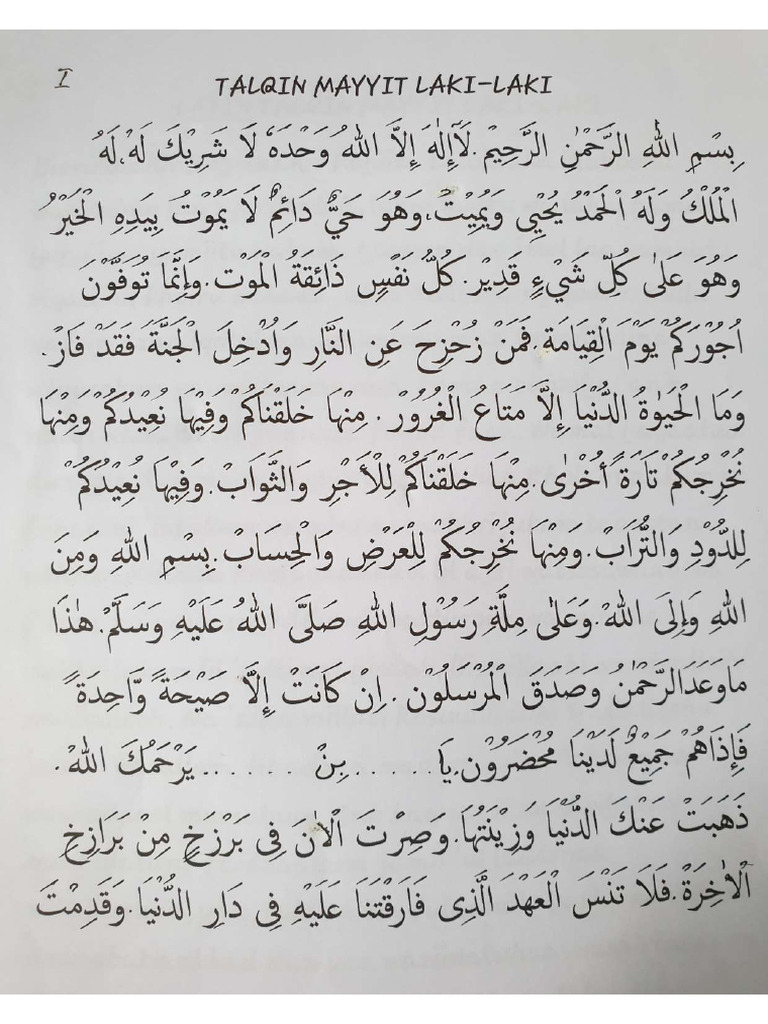 I
TALQIN MAYYIT LAKI-LAKI
بِسْمِ اللهِ الرَّحْمٰنِ الرَّحِيْمِ. لَآإِلٰهَ إِلَّا اللهُ وَحْدَهٗ لَا شَرِيْكَ لَهْ، لَهُ
الْمُلْكُ وَلَهُ الْحَمْدُ يُحْيِي وَيُمِيْتُ، وَهُوَ حَيٌّ دَائِمٌ لَا يَمُوْتُ بِيَدِهِ الْخَيْرُ
وَهُوَ عَلٰى كُلِّ شَيْءٍ قَدِيْر. كُلُّ نَفْسٍ ذَائِقَةُ الْمَوْت. وَإِنَّمَا تُوَفَّوْنَ
اُجُوْرَكُمْ يَوْمَ الْقِيَامَة. فَمَنْ زُحْزِحَ عَنِ النَّارِ وَاُدْخِلَ الْجَنَّةَ فَقَدْ فَازْ.
وَمَا الْحَيٰوةُ الدُّنْيَا إِلَّا مَتَاعُ الْغُرُوْرْ. مِنْهَا خَلَقْنَاكُمْ وَفِيْهَا نُعِيْدُكُمْ وَمِنْهَا
نُخْرِجُكُمْ تَارَةً أُخْرٰى. مِنْهَا خَلَقْنَاكُمْ لِلْأَجْرِ وَالثَّوَابْ. وَفِيْهَا نُعِيْدُكُمْ
لِلدُّوْدِ وَالتُّرَابْ. وَمِنْهَا نُخْرِجُكُمْ لِلْعَرْضِ وَالْحِسَابْ. بِسْمِ اللهِ وَمِنَ
اللهِ وَإِلَى اللهْ. وَعَلٰى مِلَّةِ رَسُوْلِ اللهِ صَلَّى اللهُ عَلَيْهِ وَسَلَّمْ. هٰذَا
مَاوَعَدَالرَّحْمٰنُ وَصَدَقَ الْمُرْسَلُوْن. اِنْ كَانَتْ إِلَّا صَيْحَةً وَّاحِدَةً
فَإِذَاهُمْ جَمِيْعٌ لَدَيْنَا مُحْضَرُوْن. يَا...... بِنْ ...... يَرْحَمُكَ اللهْ.
ذَهَبَتْ عَنْكَ الدُّنْيَا وَزِيْنَتُهَا. وَصِرْتَ الْاٰنَ فِى بَرْزَخٍ مِنْ بَرَازِخِ
الْاٰخِرَةْ. فَلَا تَنْسَ الْعَهْدَ الَّذِى فَارَقْتَنَا عَلَيْهِ فِى دَارِ الدُّنْيَا. وَقَدِمْتَ